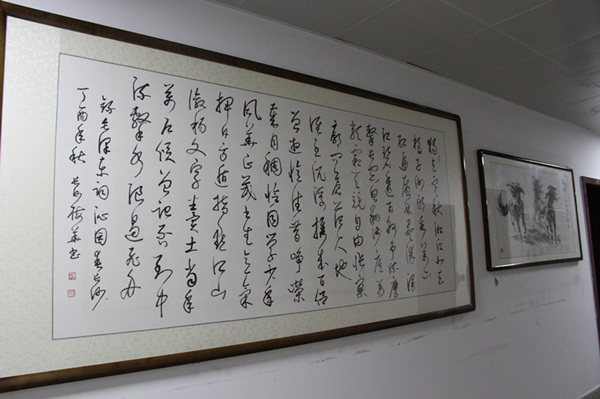 独立寒秋湘江北去
橘子洲头看万山
红遍层林尽染漫
江碧透百舸争流鹰
击长空鱼翔浅底万
类霜天竞自由怅寥
廓问苍茫大地
谁主沉浮携来百侣
曾游忆往昔峥嵘
岁月稠恰同学少年
风华正茂书生意气
挥斥方遒指点江山
激扬文字粪土当年
万户侯曾记否到中
流击水浪遏飞舟
录毛泽东词沁园春长沙
丁酉年秋